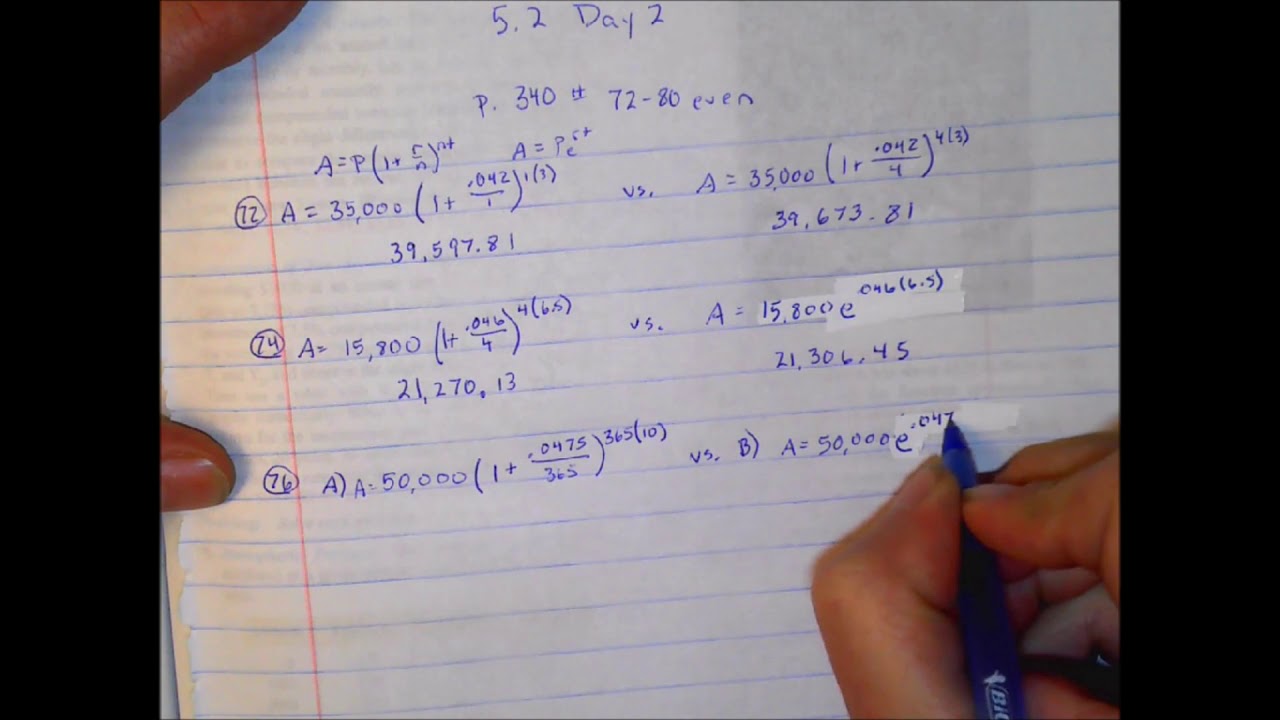 5.2 Day 2
p. 340 # 72-80 even
A=P(1+r/n)^nt A=Pe^rt
72 A = 35,000 (1+ .042/1)^1(3) vs. A = 35,000 (1+ .042/4)^4(3)
39,597.81 39,673.81
74 A= 15,800 (1+ .046/4)^4(6.5) vs. A = 15,800e^.046(6.5)
21,270.13 21,306.45
76 A) A=50,000 (1+ .0475/365)^365(10) vs. B) A=50,000e^.047
BIC